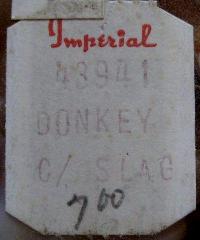 Imperial
43941
DONKEY
C/ SLAG
700